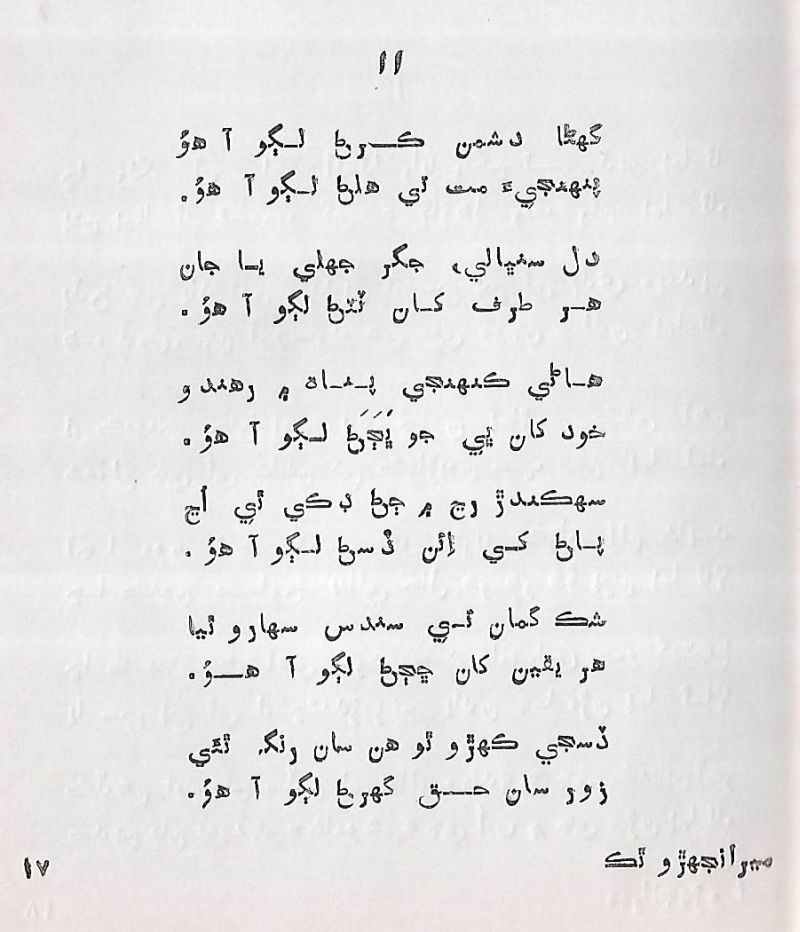 ۱۱
گهڻا دشمن ڪرڻ لڳو آ هوُ
پنهنجيءَ مت تي هلڻ لڳو آ هوُ.
دل سنڀالي، جگر جهلي يا جان
هر طرف کان ٽٽڻ لڳو آ هوُ.
هاڻي ڪنهنجي پناهه ۾ رهندو
خود کان ڀي جو ڀڄڻ لڳو آ هوُ.
سهڪندڙ رڃ ۾ ڄڻ ڊڪي ٿي اُڃ
پاڻ کي اِئن ڏسڻ لڳو آ هوُ.
شڪ گمان ئي سندس سهارو ٿيا
هر يقين کان ڇڄڻ لڳو آ هوُ.
ڏسجي ڪهڙو ٿو هن سان رنگ ٿئي
زور سان حق گهرڻ لڳو آ هوُ.
ميرانجهڙو ٿڪ
۱۷